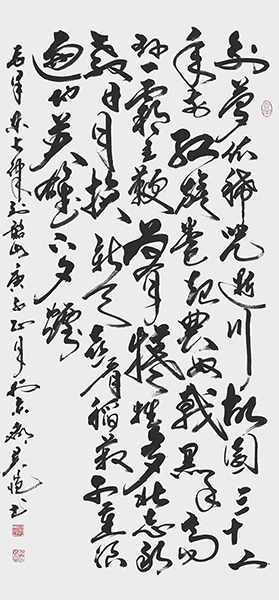 别梦依稀咒逝川故园三十二
年前红旗卷起農奴戟黑手高
悬霸主鞭为有犧牲多壮志敢
教日月换新天喜看稻菽千重浪
遍地英雄下夕烟
毛泽东七律到韶山庚子正月於京都书